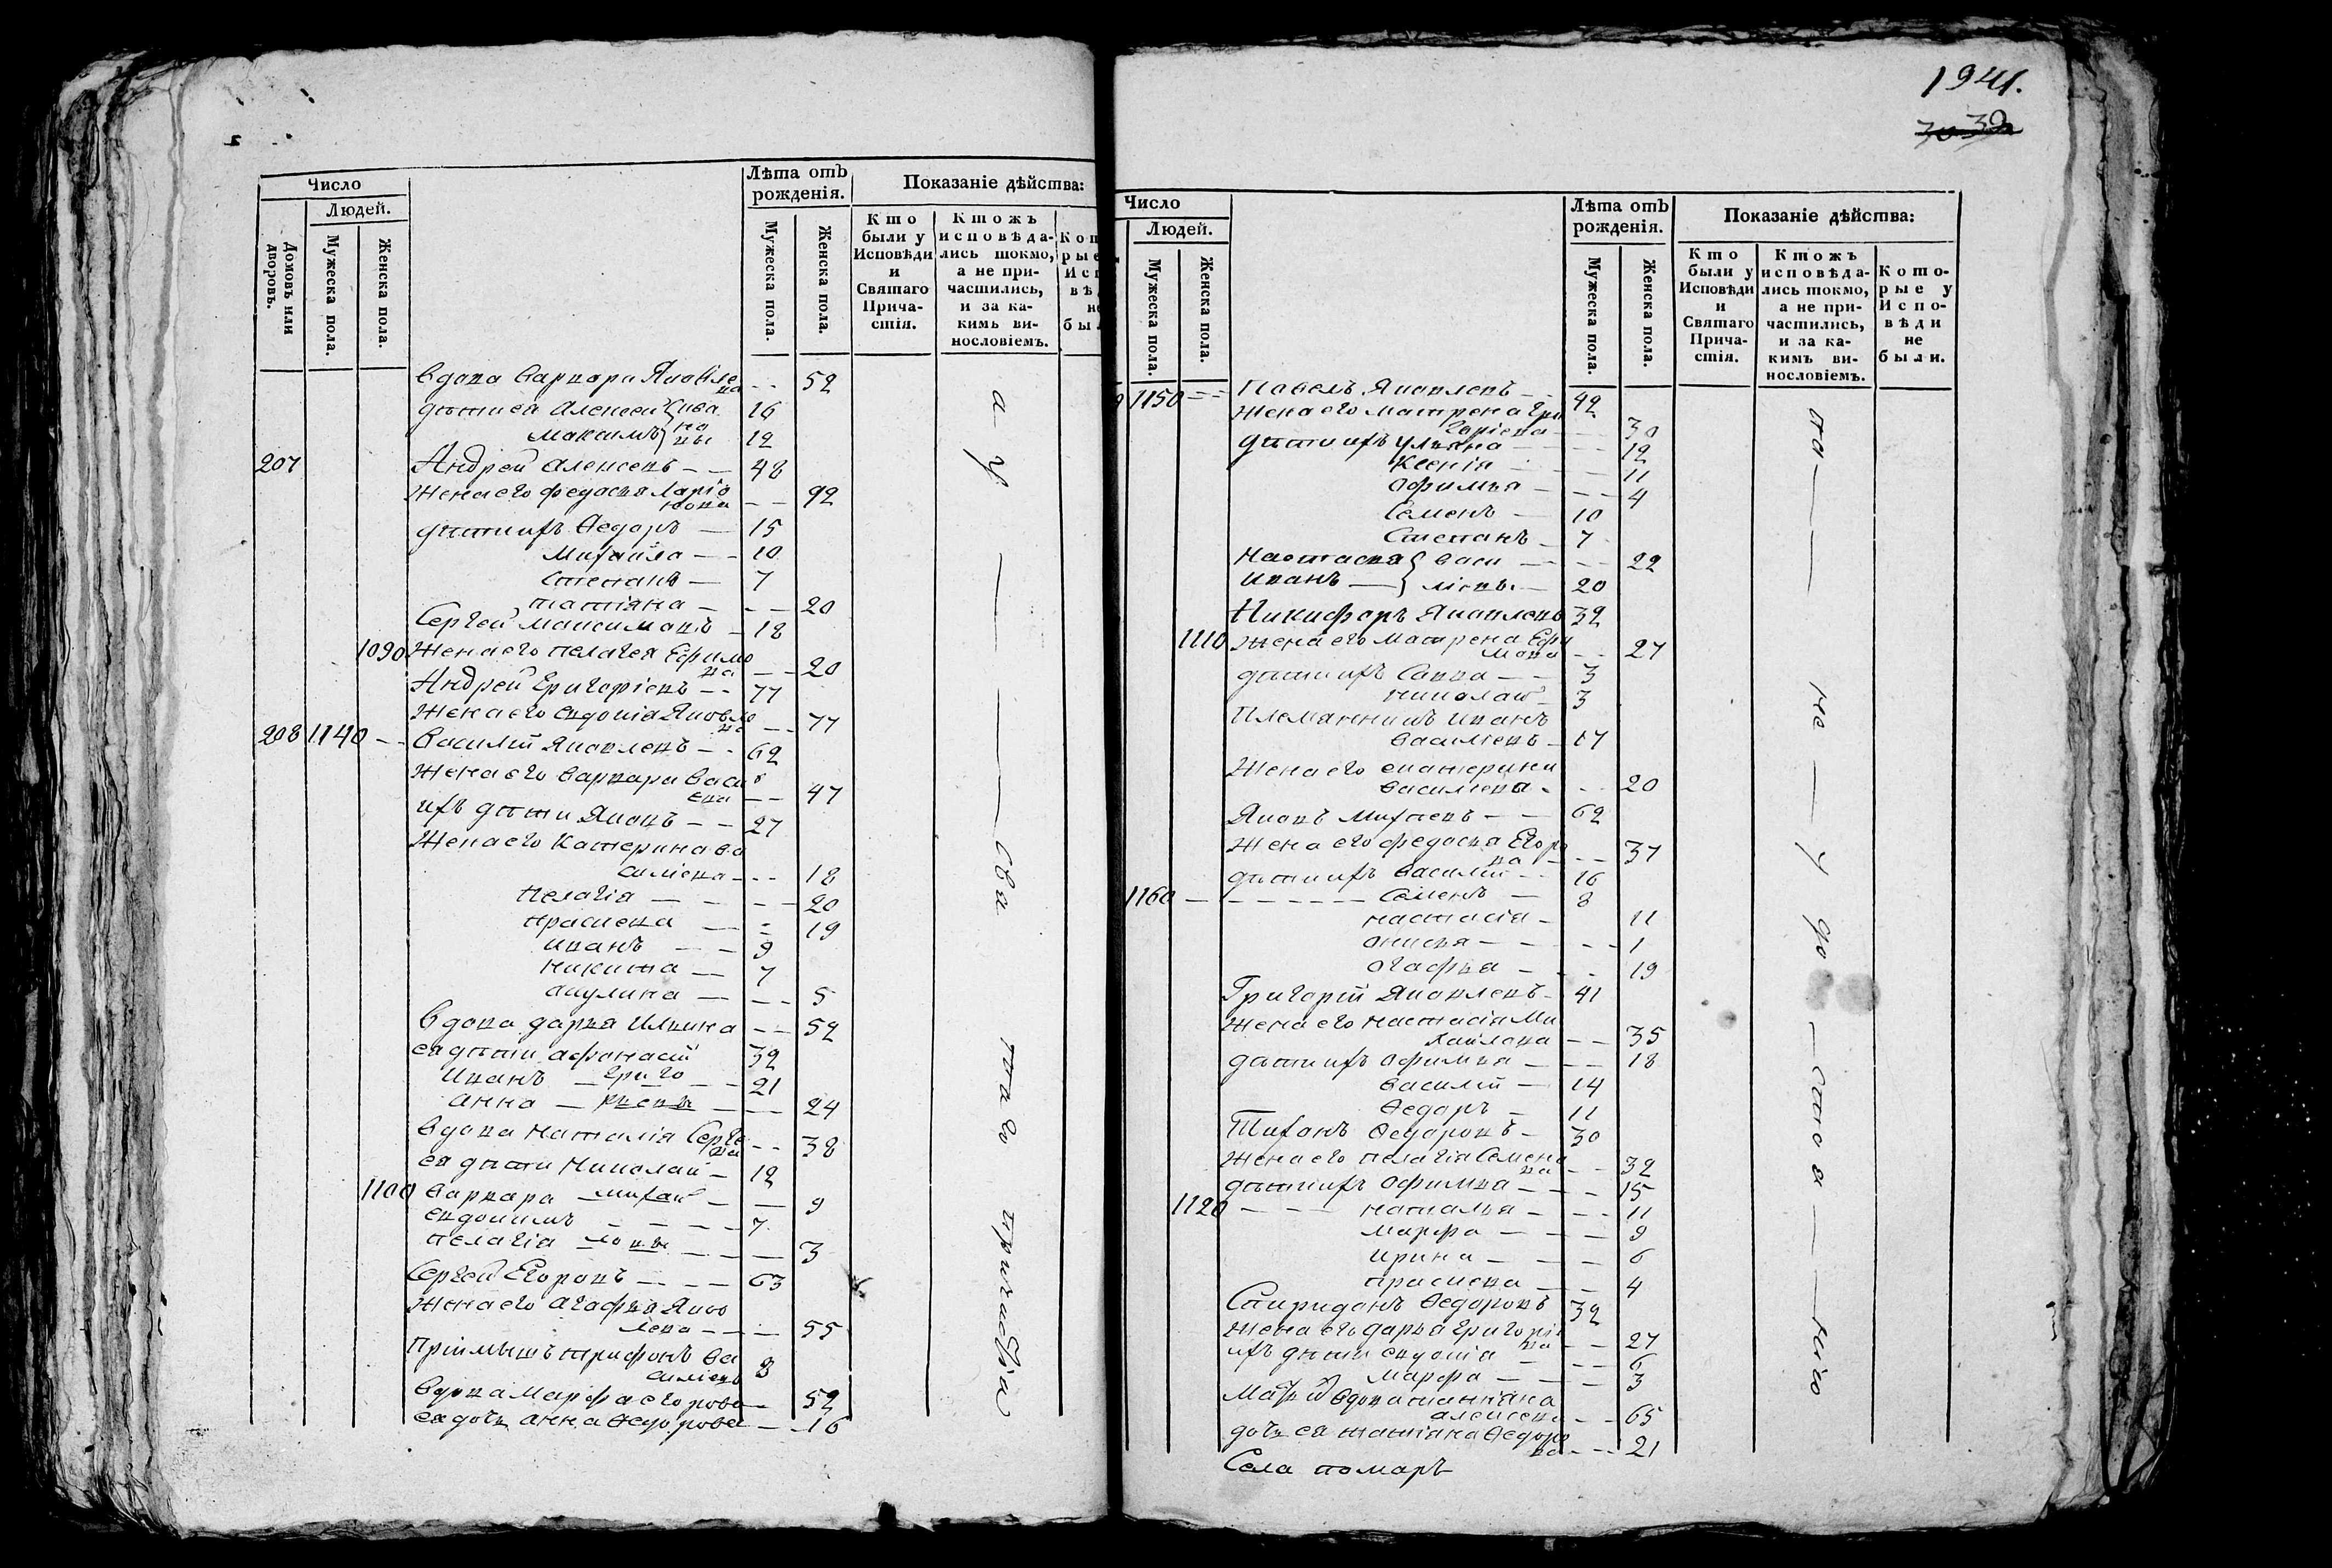 Число
Людей.
Домовъ или дворовъ.
Мужеска пола.
Женска пола.
Лѣта отъ рожденія.
Мужеска пола.
Женска пола.
Показаніе дѣйства:
Кто были у Исповѣди и Святаго Причастія.
Ктожъ исповѣдались токмо, а не причастились, и за какимъ винословіемъ.
вдова варвара Яковле
ва -- 52
дѣти ея алексей } ива 16
максимъ } но вы 12
207 Андрей алексеевъ -- 48
жена его федосья Ларіо
нова -- 42
дѣти ихъ Ѳедоръ -- 15
михайла -- 10
степанъ -- 7
татіяна -- 20
Сергей максимовъ -- 18
1090 жена его пелагея Ефимо
ва -- 20
Андрей Григоріевъ -- 77
жена его евдокія Яковле
ва -- 77
208 1140 -- василій Яковлевъ -- 62
жена его варвара васи
ева -- 47
ихъ дѣти Яковъ -- 27
жена его катерина ва
силіева -- 18
пелагія -- 20
прасковя -- 19
иванъ -- 9
никита -- 7
акулина -- 5
вдова дарья Ильина -- 52
ея дѣти афонасій 32
иванъ -- григо -- 21
анна -- рьевы -- 24
вдова наталія Серге
ва -- 38
ея дѣти николай -- 12
1100 варвара -- михай -- 9
евдокимъ -- 7
пелагія -- ловы -- 3
Сергей Егоровъ -- 63
жена его агафья Яков
лева -- 55
пріимышъ трифонъ ва
силіевъ 8
вдова марфа егорова 52
ея дочь анна Ѳедорова -- 16
а у
сва
таго
причастія
1941.
Число
Людей.
Мужеска пола.
Женска пола.
Лѣта отъ рожденія.
Мужеска пола.
Женска пола.
Показаніе дѣйства:
Кто были у Исповѣди и Святаго Причастія.
Ктожъ исповѣдались токмо, а не причастились, и за какимъ винословіемъ.
Которые у Исповѣди не были.
1150 -- Павелъ Яковлевъ -- 42
жена его матрена Гри
горіева -- 30
дѣти ихъ ульяна -- 12
ксенія -- 11
офимья -- 4
Семенъ -- 10
Степанъ -- 7
настасья } васи -- 22
иванъ -- } ліевы -- 20
Никифоръ Яковлевъ 32
1110 жена его матрена Ефи
мова -- 27
дѣти ихъ Савва -- 3
николай -- 3
племянникъ иванъ
василіевъ -- 17
жена его екатерина
василіева -- 20
Яковъ михеевъ -- 62
жена его федосья Егоро
ва -- 37
дѣти ихъ василій -- 16
1160 -- Семенъ -- 8
настасія -- 11
анисья -- 1
агафья -- 19
Григорій Яковлевъ -- 41
жена его настасія ми
хайлова -- 35
дѣти ихъ офимья -- 18
василій -- 14
Ѳедоръ -- 11
Тихонъ Ѳедоровъ -- 30
жена его пелагія Семено
ва -- 32
дѣти ихъ офимья -- 15
1120 -- наталья -- 11
марфа -- 9
ирина -- 6
прасковя -- 4
Спиридонъ Ѳедоровъ 32
жена его дарья Григорі
ва -- 27
ихъ дѣти евдокія -- 6
марфа -- 3
вдова татіяна
алексева -- 65
дочь ея татіяна Ѳедоро
ва -- 21
Села помаръ
по
не
у
до
стоя
нію